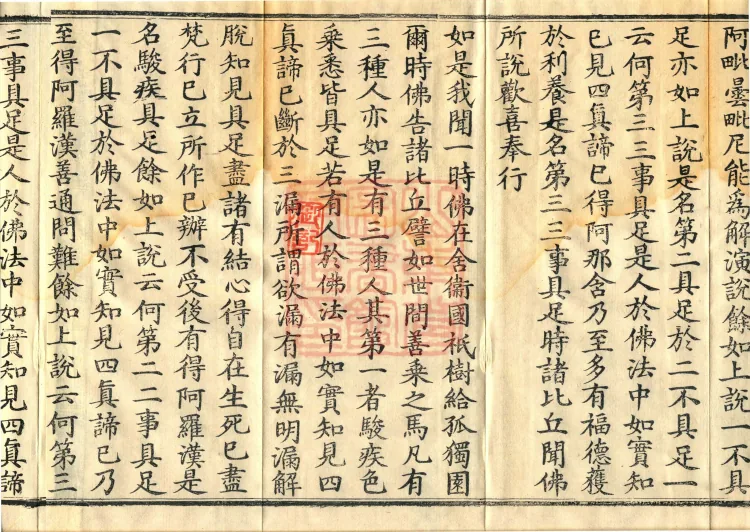 阿毗曇毗尼能為解演說餘如上說一不具
足亦如上說是名第二具足於二不具足一
云何第三三事具足是人於佛法中如實知
已見四真諦已得阿那含乃至多有福德獲
於利養是名第三三事具足時諸比丘聞佛
所說歡喜奉行
如是我聞一時佛在舍衛國祇樹給孤獨園
爾時佛告諸比丘譬如世間善乘之馬凡有
三種人亦如是有三種人其第一者駿疾色
乘悉皆具足若有人於佛法中如實知見四
真諦已斷於三漏所謂欲漏有漏無明漏解
脫知見具足盡諸有結心得自在生死已盡
梵行已立所作已辦不受後有得阿羅漢是
名駿疾具足餘如上說云何第二二事具足
一不具足於佛法中如實知見四真諦已乃
至得阿羅漢善通問難餘如上說云何第三
三事具足是人於佛法中如實知見四真諦